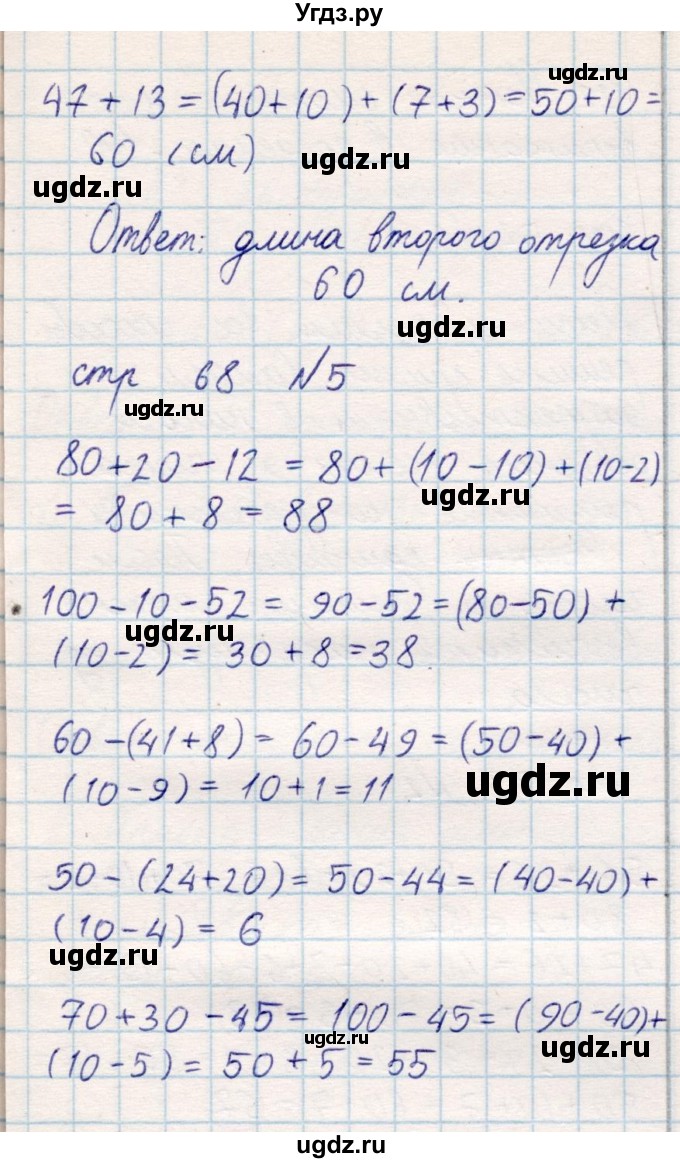 Угдз.ру
ugdz.ru
47 + 13 = (40+10) + (7+3) = 50+10 =
60 (см)
ugdz.ru
ugdz.ru
Ответ: длина второго отрезка
60 см.
ugdz.ru
стр 68 №5
ugdz.ru
80+20-12 = 80+ (10-10) + (10-2)
ugdz.ru
= 80 + 8 = 88
100-10-52 = 90-52 = (80-50) +
ugdz.ru
(10-2) = 30 + 8 = 38
60 - (41+8) = 60-49 = (50-40) +
ugdz.ru
(10-9) = 10+1 = 11
50 - (24+20) = 50-44 = (40-40) +
(10-4) = 6
ugdz.ru
70+30-45 = 100-45 = (90-40)+
ugdz.ru
ugdz.ru
(10-5) = 50 + 5 = 55
ugdz.ru